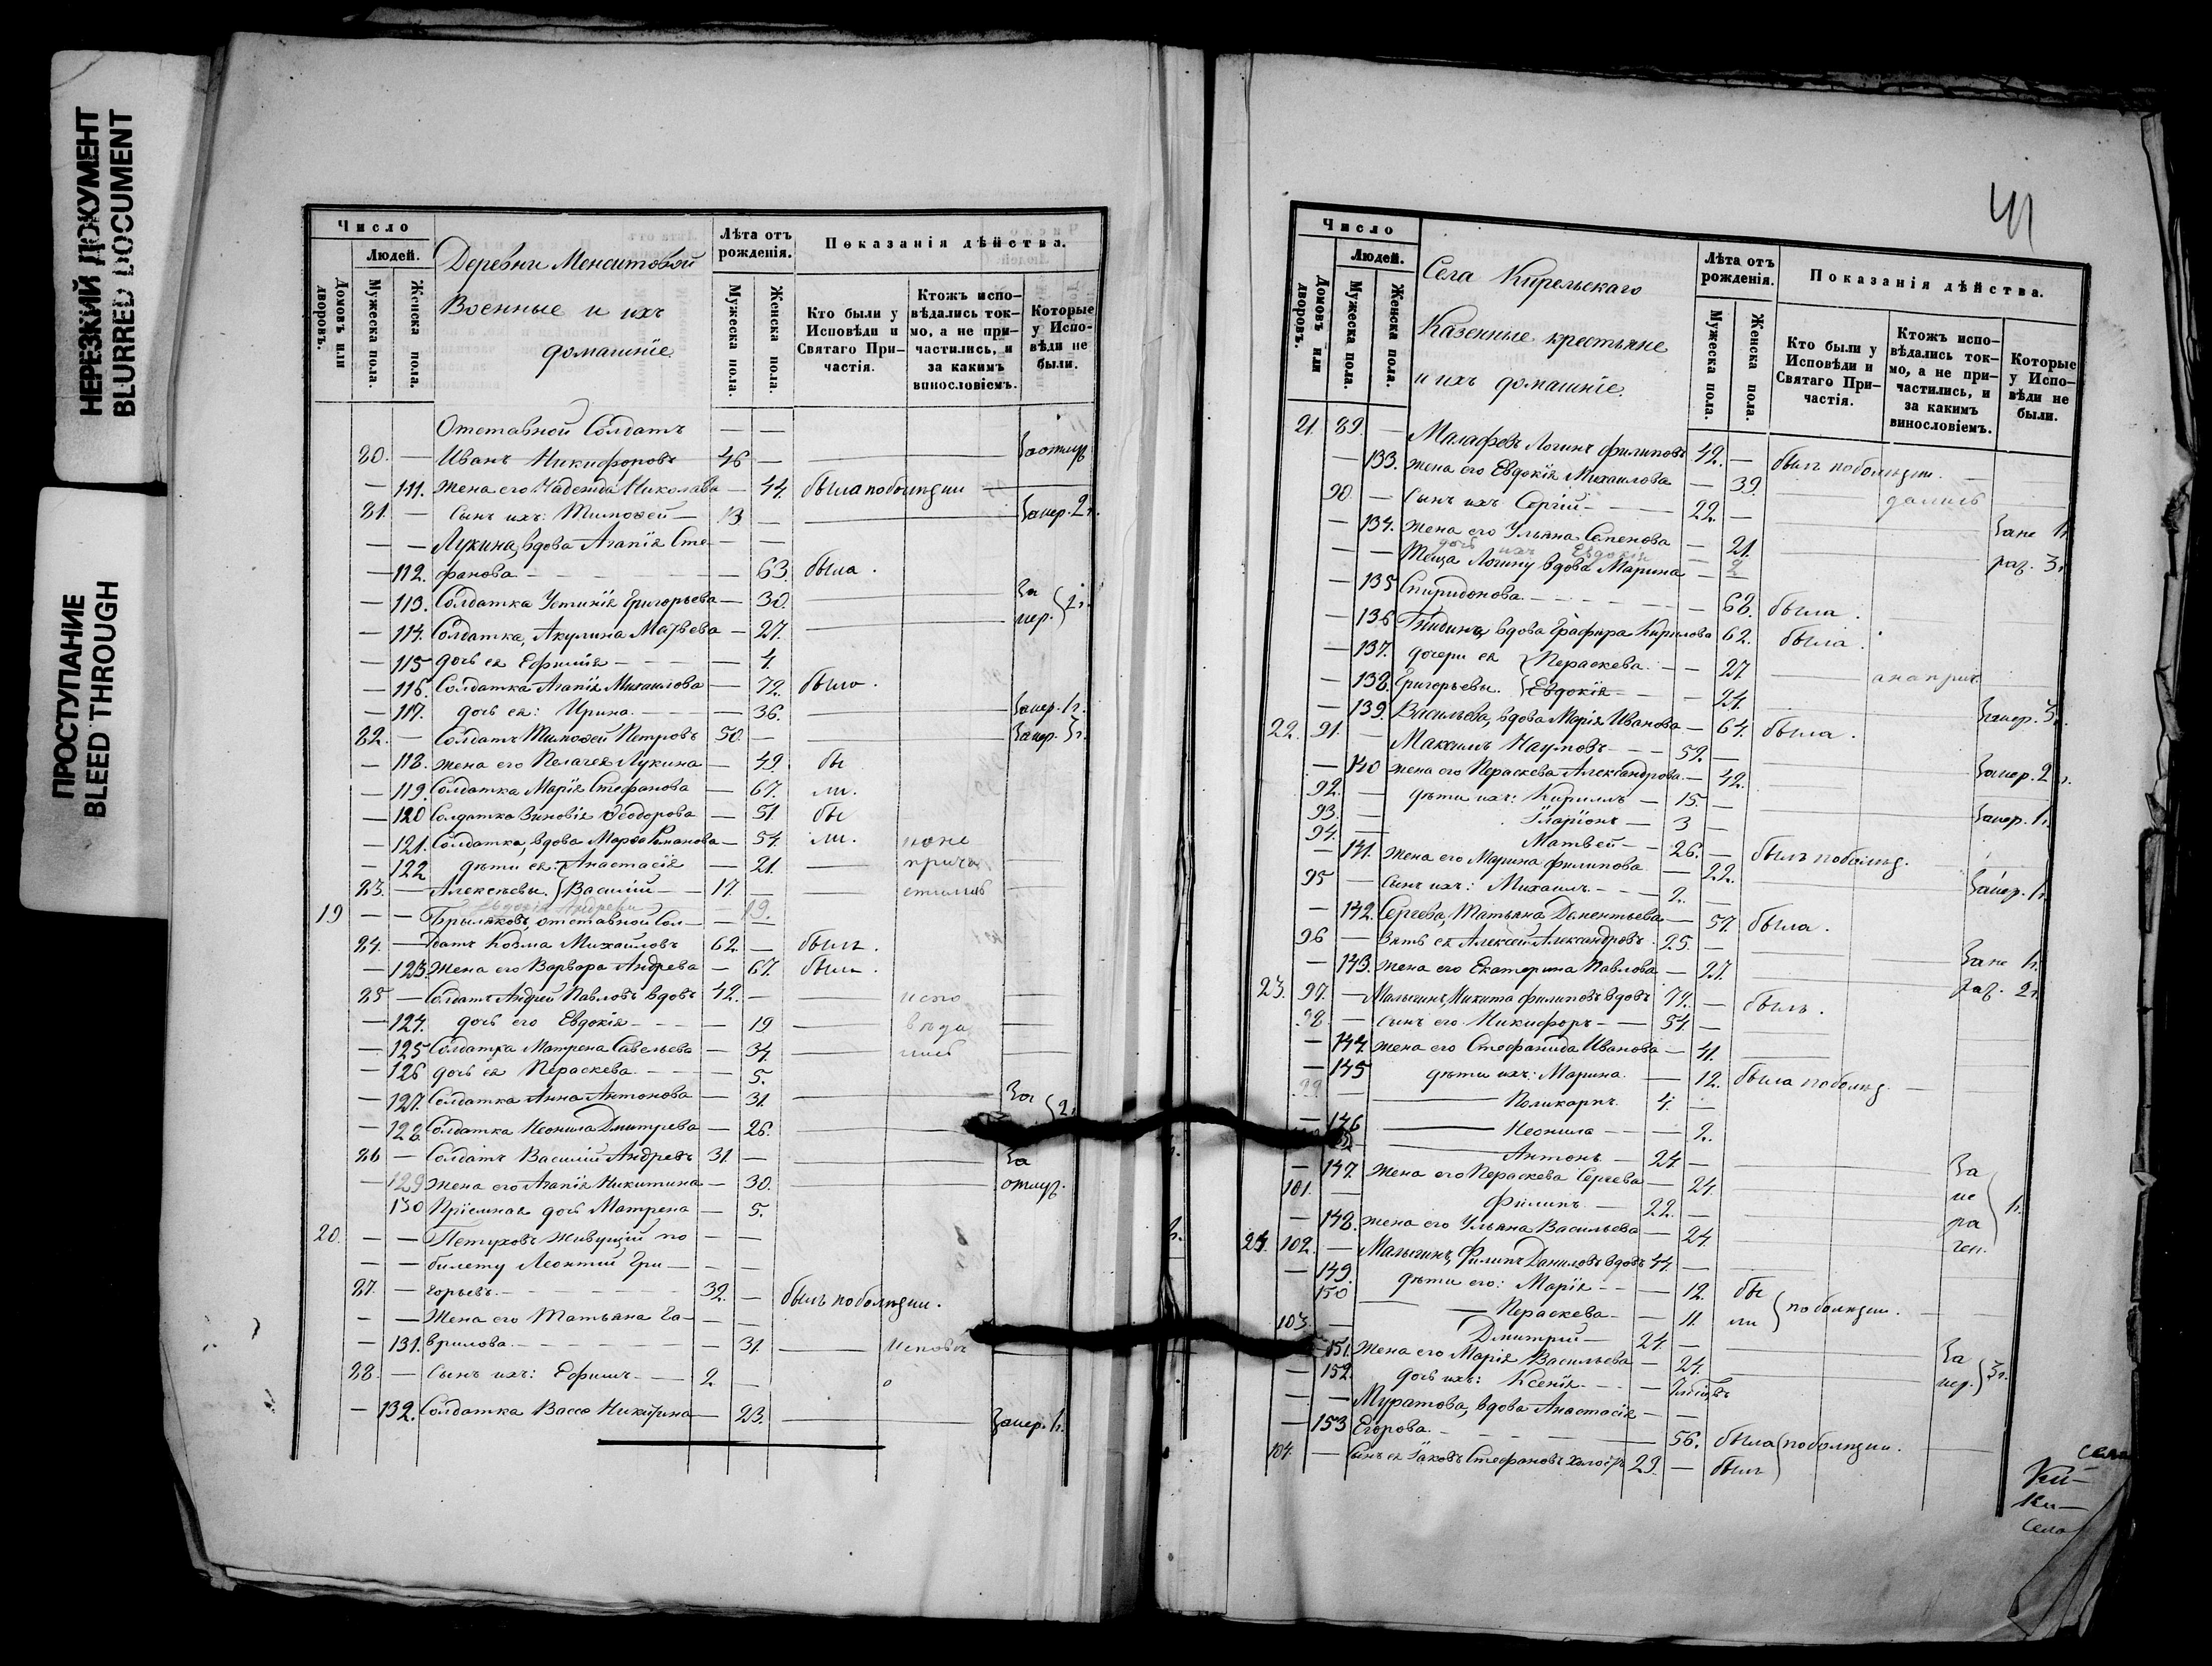 НЕРЕЗКИЙ ДОКУМЕНТ
BLURRED DOCUMENT
ПРОСТУПАНИЕ
BLEED THROUGH
Число
Людей.
Домовъ или дворовъ.
Мужеска пола.
Женска пола.
Деревни
Военные и ихъ
домашніе
Лѣта отъ рожденія.
Мужеска пола.
Женска пола.
Показанія дѣйства.
Кто были у Исповѣди и Святаго Причастія.
Ктожъ исповѣдались токмо, а не причастились, и за какимъ винословіемъ.
Которые у Исповѣди не были.
Отставной Солдатъ — —
80. — Иванъ Никифоровъ 46 — За отлуч
— 111. Жена его Надежда Николаева — 44. была по болѣзни
81. — Сынъ ихъ: Тимоѳей — 13 — За нер. 2 г.
— — Лукина, вдова Агапія Сте- — —
— 112. фанова — 63. была.
— 113. Солдатка Устинія Григорьева — 30. За
— 114. Солдатка, Акулина Матвѣева — 27. нер. 2 г.
— 115 дочь ея Ефимія — 4.
— 116. Солдатка Агапія Михаилова — 72. была.
— 117. дочь ея: Ирина — 36. За нер. 1 г.
82. — Солдатъ Тимоѳей Петровъ 50. — За нер. 3 г.
— 118. Жена его Пелагея Лукина — 49. бы
— 119. Солдатка Марія Стефанова — 67. ли.
— 120 Солдатка Зиновія Ѳеодорова — 51. бы
— 121. Солдатка, вдова Марѳа Романова — 54. ли. но не
— 122 дѣти ея: Анастасія — 21. — прича
83. — Алексѣевы. Василій — 17 — стились
Евдокія Андреева — 19.
19 — — Брыляковъ, отставной Сол- —
84. — датъ Козма Михайловъ 62. — былъ.
— 123. Жена его Варвара Андрева — 67. была.
85 — Солдатъ Андрей Павловъ вдовъ 42. — испо
— 124. дочь его Евдокія — 19 — вѣда
— 125 Солдатка Матрена Савельева — 34. — лись
— 126 дочь ея Параскева — 5.
— 127. Солдатка Анна Антонова — 31. За 2 г.
— 128. Солдатка Неонила Дмитрева — 26.
86 — Солдатъ Василій Андревъ 31. — За
— 129 Жена его Агапія Никитина — 30. отлуч.
130 Пріемная дочь Матрена — 5.
20. — — Пѣтуховъ живущій по — —
— — билету Леонтій Гри- — —
87. — горьевъ. 32. — былъ по болѣзни.
— — Жена его Татьяна Га- — —
— 131. врилова. — 31. — Исповѣ
88. — Сынъ ихъ: Ефимъ — 2. —
— 132. Солдатка Васса Никитина — 23. — За нер. 1 г.
41
Число
Людей.
Домовъ или дворовъ.
Мужеска пола.
Женска пола.
Села Кирельскаго
Казенные крестьяне
и ихъ домашніе.
Лѣта отъ рожденія.
Мужеска пола.
Женска пола.
Показанія дѣйства.
Кто были у Исповѣди и Святаго Причастія.
Ктожъ исповѣдались токмо, а не причастились, и за какимъ винословіемъ.
Которые у Исповѣди не были.
21. 89. — Малафеевъ Логинъ Филиповъ 42. — былъ по болѣзни.
— 133. Жена его Евдокія Михаилова — 39. дались
90. — Сынъ ихъ Сергій 22. —
— 134. Жена его Ульяна Семенова — 21. За не 1 г
дочь ихъ Евдокія 2
— — Теща Логину вдова Марина — — раз. 3 г
— 135 Спиридонова. — 68. была.
— 136 вдова Глафира Кирилова 62. была.
— 137. дочери ея Параскева. — 27. а на прич.
— 138. Григорьевы. Евдокія — 24.
— 139. Васильева, вдова Марія Иванова — 64. была. За нер. 3 г.
22. 91. — Максимъ Наумовъ 59. —
— 140 Жена его Параскева Александрова. — 42. За нер. 2 г.
92. — дѣти ихъ: Кириллъ — 15. —
93. — Іларіонъ — 3 — За нер. 1 г.
94. — Матвей — 26. — былъ по болѣзн.
— 141. Жена его Марина Филипова — 22.
95 — Сынъ ихъ: Михаилъ 2. — За нер. 1 г.
— 142. Сергеева, Татьяна Дементьева — 57. была.
96 — Зять ея Алексѣй Александровъ 25. —
— 143. Жена его Екатерина Павлова — 27. За не 1 г.
23. 97. — Малыгинъ, Никита Филиповъ вдовъ 74. — былъ. раз. 2 г.
98. — Сынъ его Никифоръ — 54. —
— 144. Жена его Стефанида Иванова — 41.
— 145 дѣти ихъ: Марина. — 12. была по болѣз.
99 — Поликарпъ. 4. —
— 146 Неонила — 2.
— Антонъ — 24. —
— 147. Жена его Параскева Сергева — 24. За
101. — Филипъ — 22. — не
— 148. Жена его Ульяна Васильева — 24. ра 1 г.
24. 102. — Малыгинъ, Филипъ Даниловъ вдовъ 44. — чен.
— 149. дѣти его: Марія — 12. бы
150 Параскева — 11. ли по болѣзни.
103. — Дмитрій — 24. —
— 151. Жена его Марія Васильева — 24. За
— 152. дочь ихъ: Ксенія — нер. 3 г.
— — Муратова, вдова Анастасія — —
— 153 Егорова. — 56. была по болѣзни.
104. — Сынъ ея Іаковъ Стефановъ холостъ 29. — былъ
Села
Ки-
Ки-
Села